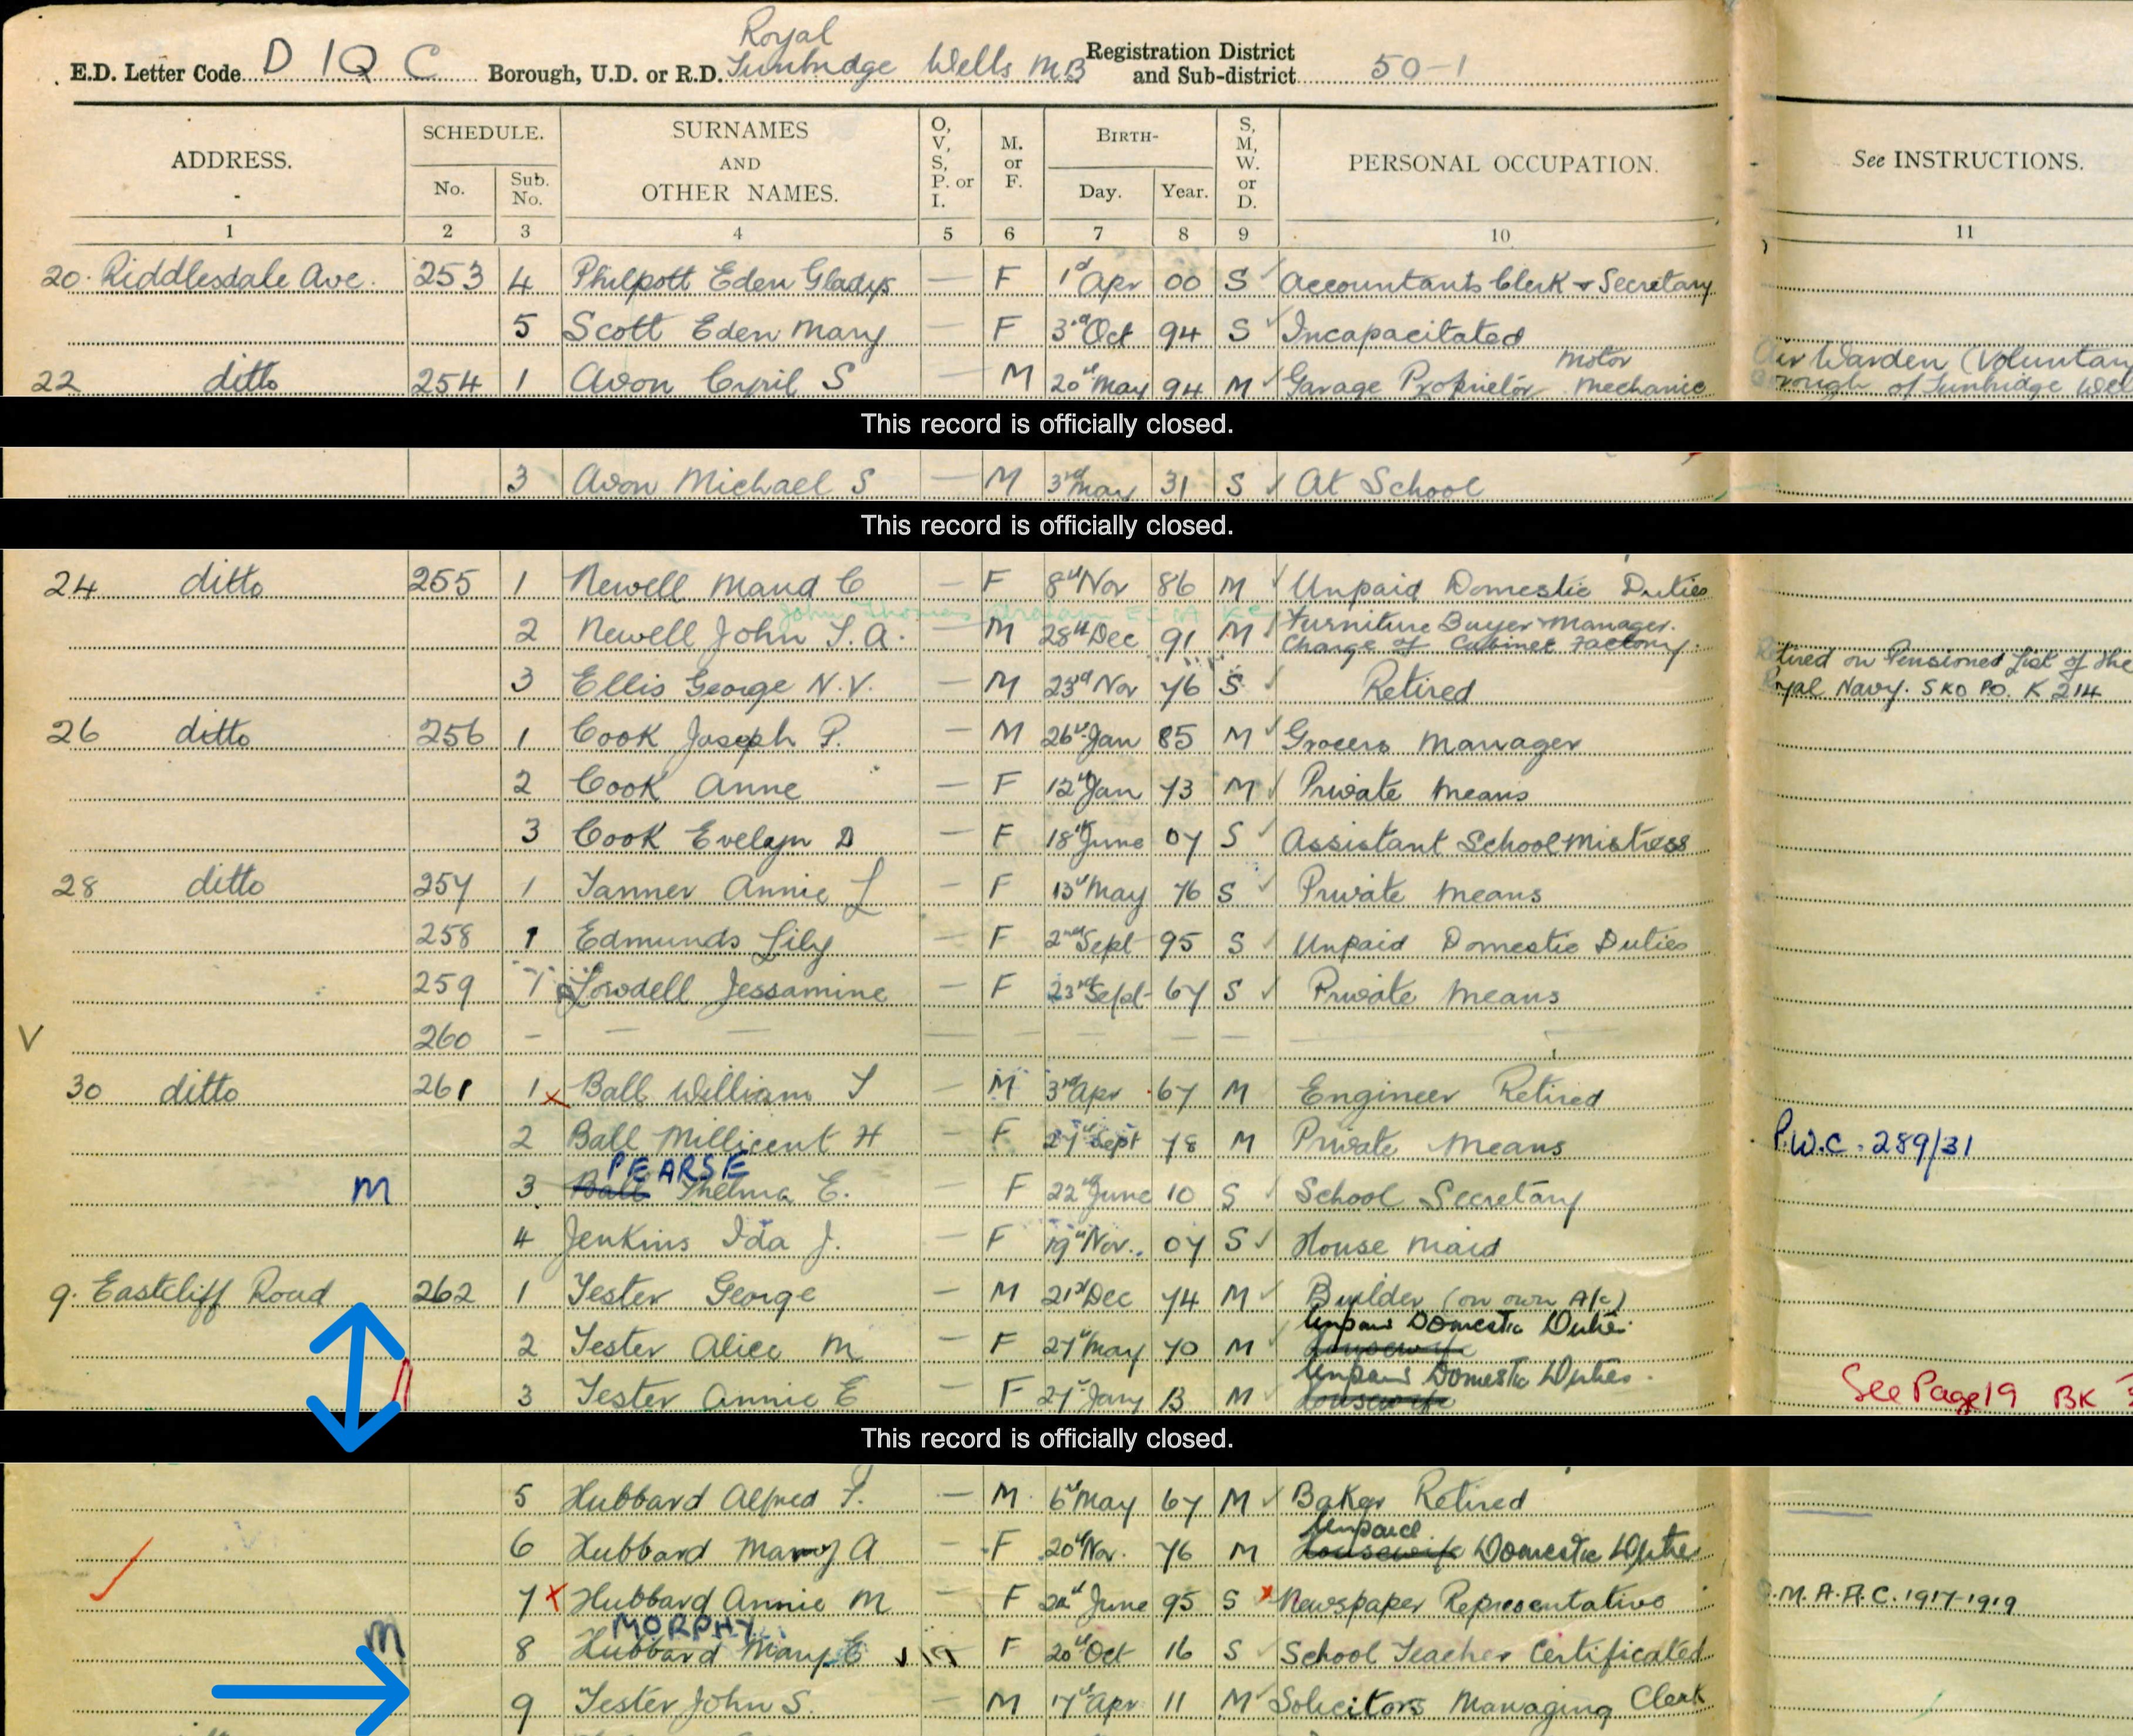 Royal
E.D. Letter Code D IQ C Borough, U.D. or R.D. Tunbridge Wells MB Registration District and Sub-district 50-1
ADDRESS. SCHEDULE. SURNAMES AND OTHER NAMES. O, V, S, P. or I. M. or F. BIRTH- S, M, W. or D. PERSONAL OCCUPATION. See INSTRUCTIONS.
No. Sub. No. Day. Year.
1 2 3 4 5 6 7 8 9 10 11
20. Riddlesdale Ave. 253 4 Philpott Eden Gladys — F 1st Apr 00 S Accountants Clerk & Secretary
5 Scott Eden Mary — F 3rd Oct 94 S Incapacitated
Motor Air Warden (Voluntary
22 ditto 254 1 Avon Cyril S — M 20th May 94 M Garage Proprietor Mechanic Borough of Tunbridge Wel
This record is officially closed.
3 Avon Michael S — M 3rd May 31 S At School
This record is officially closed.
24 ditto 255 1 Newell Maud C — F 8th Nov 86 M Unpaid Domestic Duties
John Thomas Abraham
2 Newell John T. A. M 28th Dec 91 M Furniture Buyer Manager.
Charge of Cabinet Factory.
Retired on Pensioned List of the
3 Ellis George N.V. — M 23rd Nov 76 S Retired Royal Navy. SKO PO. K 214
26 ditto 256 1 Cook Joseph P. — M 26th Jan 85 M Grocers Manager
2 Cook Anne — F 12th Jan 73 M Private Means
3 Cook Evelyn D — F 18th June 07 S Assistant School Mistress
28 ditto 257 1 Tanner Annie L — F 13th May 76 S Private Means
258 1 Edmunds Lily — F 2nd Sept 95 S Unpaid Domestic Duties
259 1 Lowdell Jessamine — F 23rd Sept 67 S Private Means
V 260 - — — — — — — —
30 ditto 261 1 x Ball William T — M 3rd Apr 67 M Engineer Retired
2 Ball Millicent H — F 27th Sept 78 M Private Means P.W.C. 289/31
PEARSE
M 3 Ball Thelma E. F 22nd June 10 S School Secretary
4 Jenkins Ida J. — F 19th Nov. 07 S House Maid
9. Eastcliff Road 262 1 Tester George — M 21st Dec 74 M Builder (on own A/c)
Unpaid Domestic Duties
2 Tester Alice M — F 27th May 70 M Housewife
Unpaid Domestic Duties.
3 Tester Annie E — F 27th Jany 13 M Housewife See Page 19 BK
This record is officially closed.
5 Hubbard Alfred T. — M 6th May 67 M Baker Retired
Unpaid
6 Hubbard Mary A — F 20th Nov. 76 M Housewife Domestic Duties
7 x Hubbard Annie M — F June 95 S x Newspaper Representative M.A.A.C. 1917-1919
MORPHY
M 8 Hubbard Mary E F 20th Oct 16 S School Teacher Certificated
9 Tester John S. — M 17th Apr 11 M Solicitors Managing Clerk